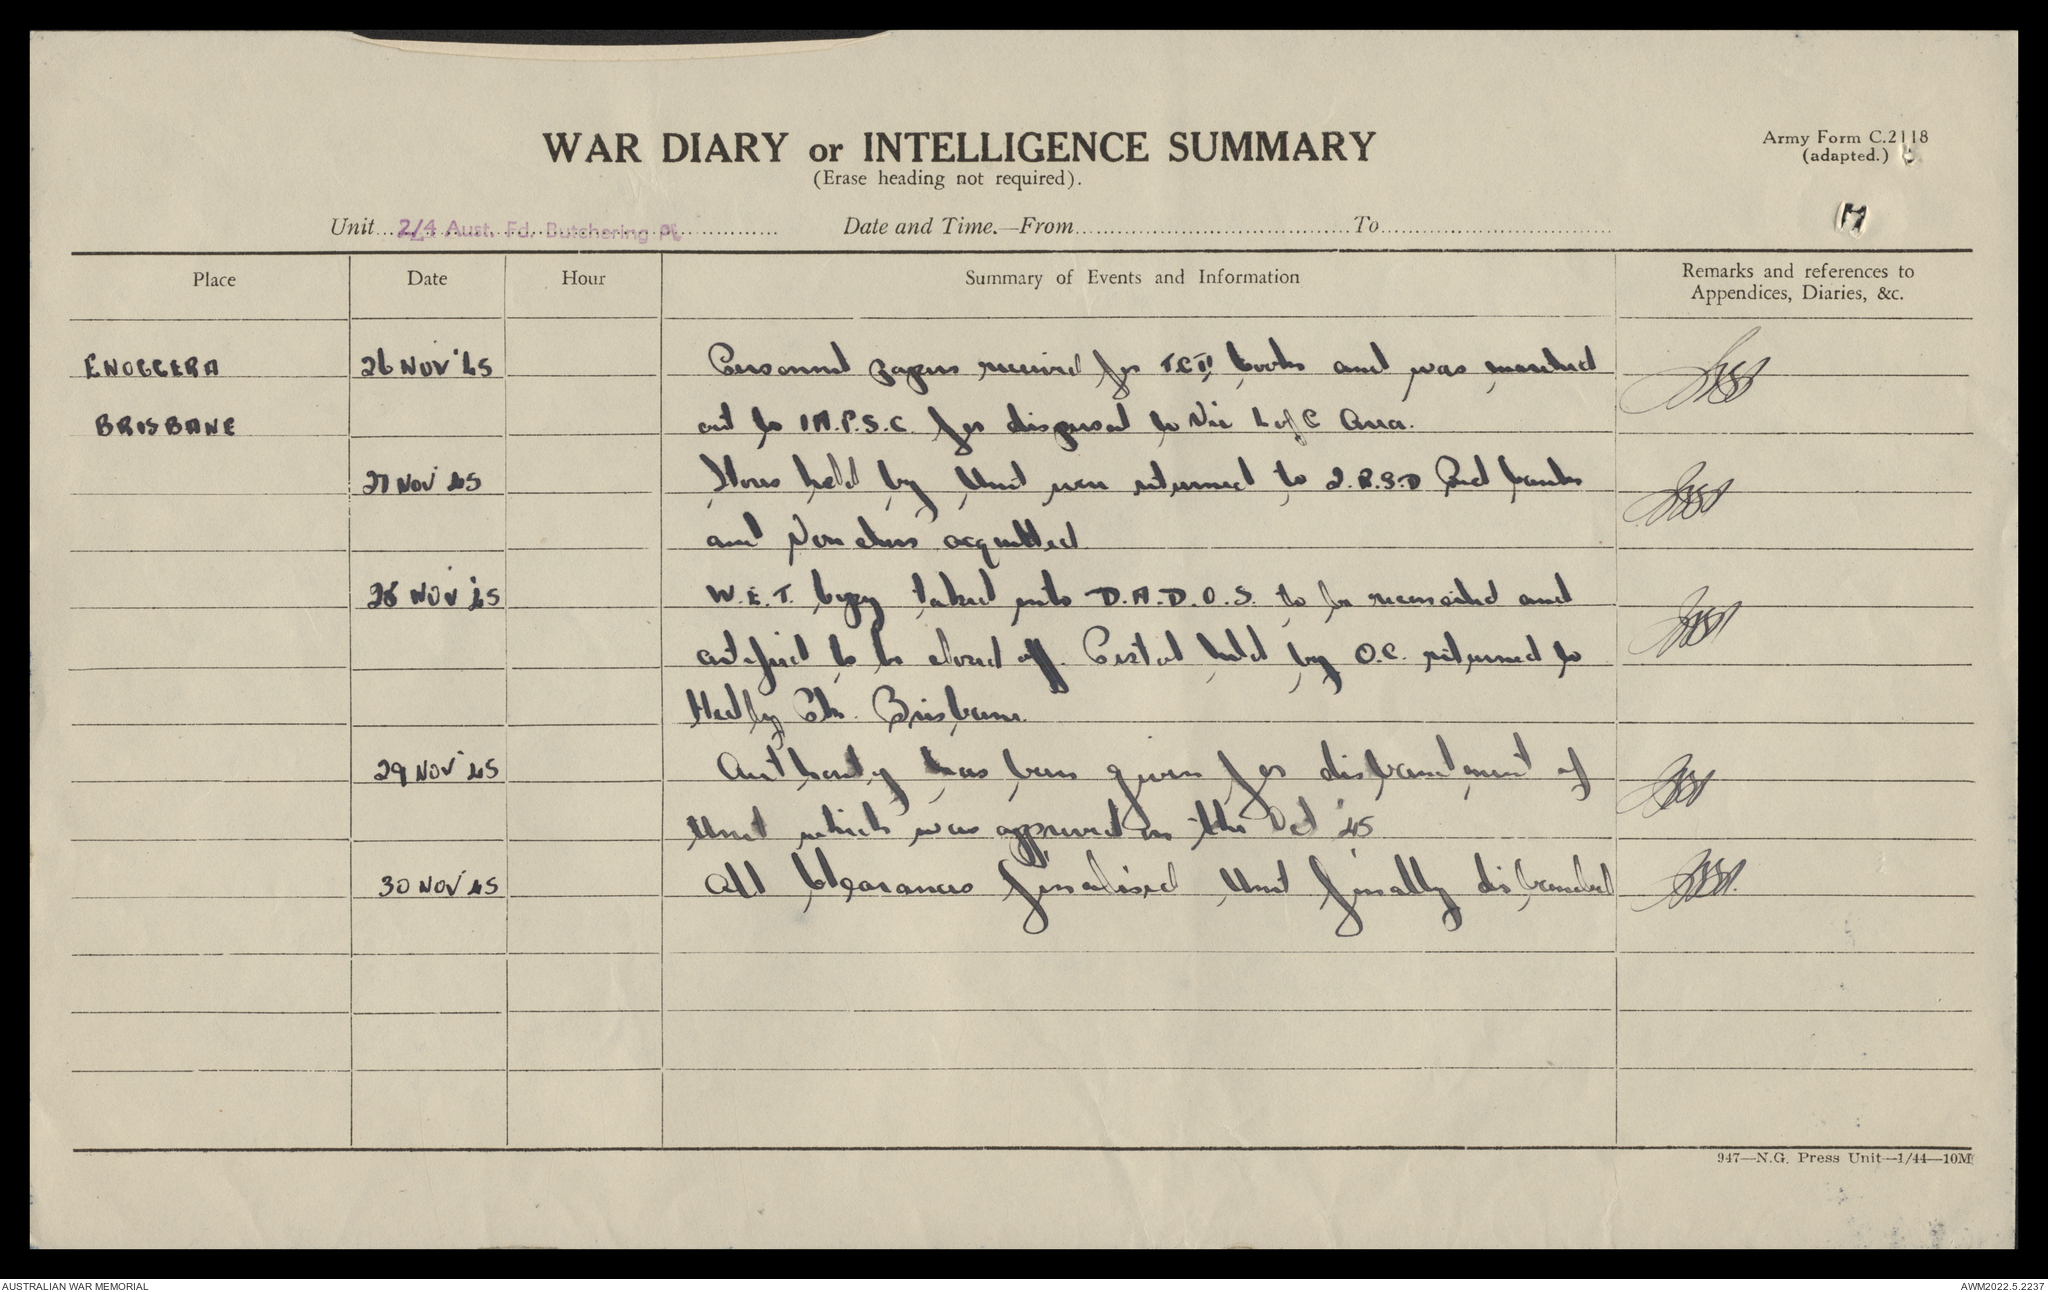 WAR DIARY or INTELLIGENCE SUMMARY
(Erase heading not required).
Army Form C.2118
(adapted.)
Unit 2/4 Aust. Fd. Butchering Pl Date and Time.—From To
17
Place Date Hour Summary of Events and Information Remarks and references to Appendices, Diaries, &c.
ENOGGERA 26 NOV '45 Personnel papers received for books and was marched
BRISBANE out to 1 A.P.S.C. for dispersal to Vic L of C Area.
27 NOV '45 Stores held by Unit were returned to 2.R.S.D Redbank
and Vouchers acquitted
28 NOV '45 W.E.T. taken into D.A.D.O.S. to be reconciled and
certified to be closed off. Pistol held by O.C. returned to
Hedley Brisbane.
29 NOV '45 Authority has been given for disbandment of
Unit which was approved on the Oct '45
30 NOV '45 All Clearances finalised Unit finally disbanded
947—N.G. Press Unit—1/44—10M
AUSTRALIAN WAR MEMORIAL
AWM2022.5.2237